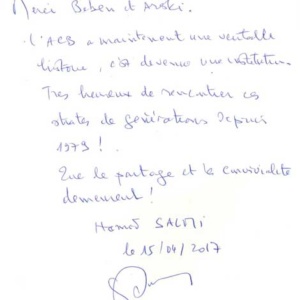 Merci Beben et Areski.
L'ACB a maintenant une veritable
histoire, c'est devenu une institution.
Tres heureux de rencontrer ces
strates de générations depuis
1979 !
Que le partage et la convivialité
demeurent !
Hamad SALMI
le 15/04/2017